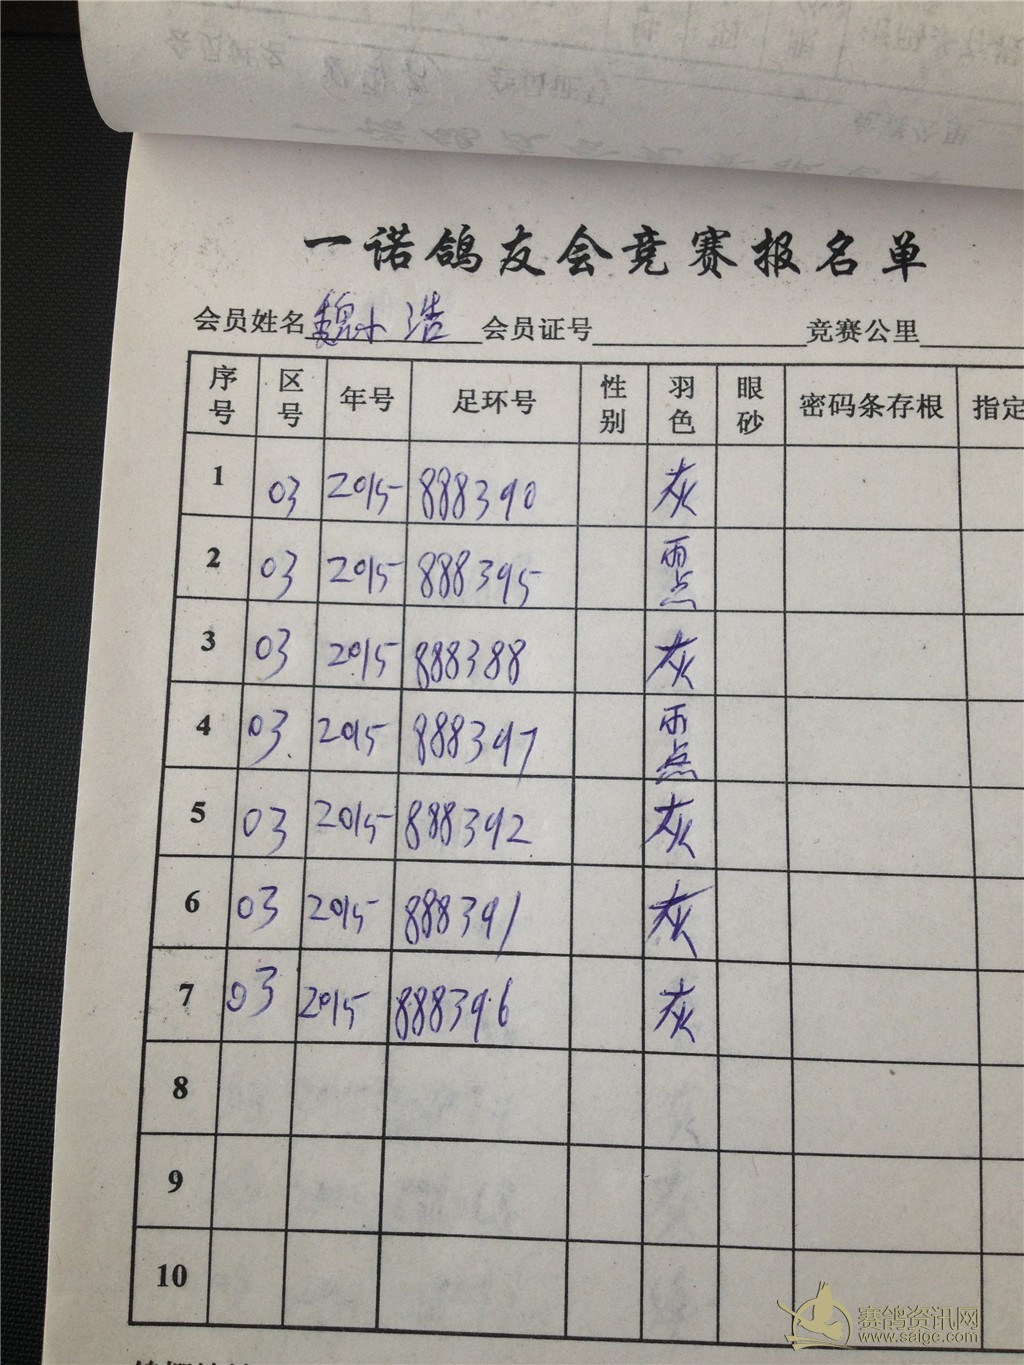 一诺鸽友会竞赛报名单
会员姓名 魏小浩 会员证号 竞赛公里
序号 区号 年号 足环号 性别 羽色 眼砂 密码条存根 指定
1 03 2015 888390 灰
2 03 2015 888395 雨点
3 03 2015 888388 灰
4 03 2015 888397 雨点
5 03 2015 888392 灰
6 03 2015 888391 灰
7 03 2015 888396 灰
8
9
10
赛鸽资讯网
www.saige.com